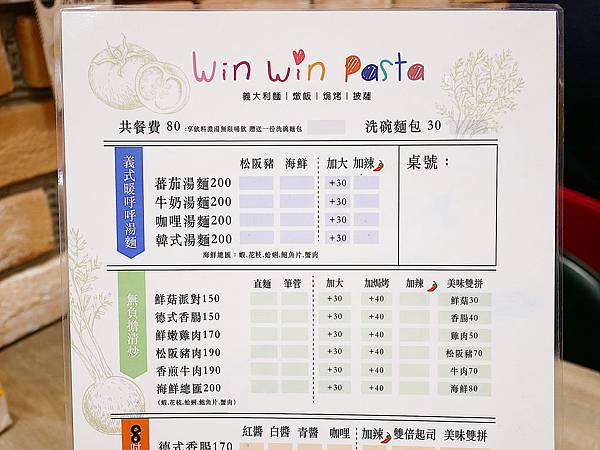 win win Pasta
義大利麵 | 燉飯 | 焗烤 | 披薩
共餐費 80 :享飲料濃湯無限暢飲 贈送一份洗碗麵包 洗碗麵包 30
義式暖呼呼湯麵
松阪豬 海鮮 加大 加辣 桌號：
蕃茄湯麵200 +30
牛奶湯麵200 +30
咖哩湯麵200 +30
韓式湯麵200 +30
海鮮總匯：蝦.花枝.蛤蜊.鮑魚片.蟹肉
無負擔清炒
直麵 筆管 加大 加焗烤 加辣 美味雙拼
鮮菇派對150 +30 +40 鮮菇30
德式香腸150 +30 +40 香腸40
鮮嫩雞肉170 +30 +40 雞肉50
松阪豬肉190 +30 +40 松阪豬70
香煎牛肉190 +30 +40 牛肉70
海鮮總匯200 +30 +40 海鮮80
(蝦.花枝.蛤蜊.鮑魚片.蟹肉)
紅醬 白醬 青醬 咖哩 加辣 雙倍起司 美味雙拼
8吋
德式香腸170